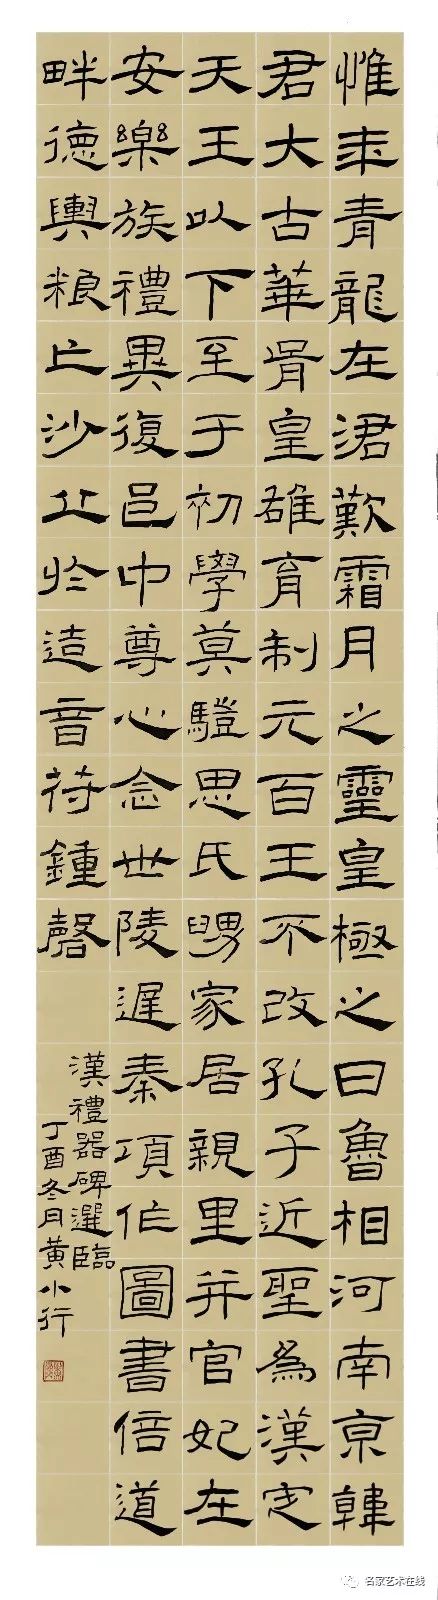 惟年青龍在涒歎霜月之靈皇極之日魯相河南京韓
君大古華胥皇雄育制元百王不改孔子近聖為漢定
天王以下至于初學莫驥思氏舅家居親里并官妃在
安樂族禮異復邑中尊心念世陵遲秦項作圖書倍道
畔德輿粮亡沙丘於造音符鍾磬
漢禮器碑選臨
丁酉冬月黄小行
名家艺术在线